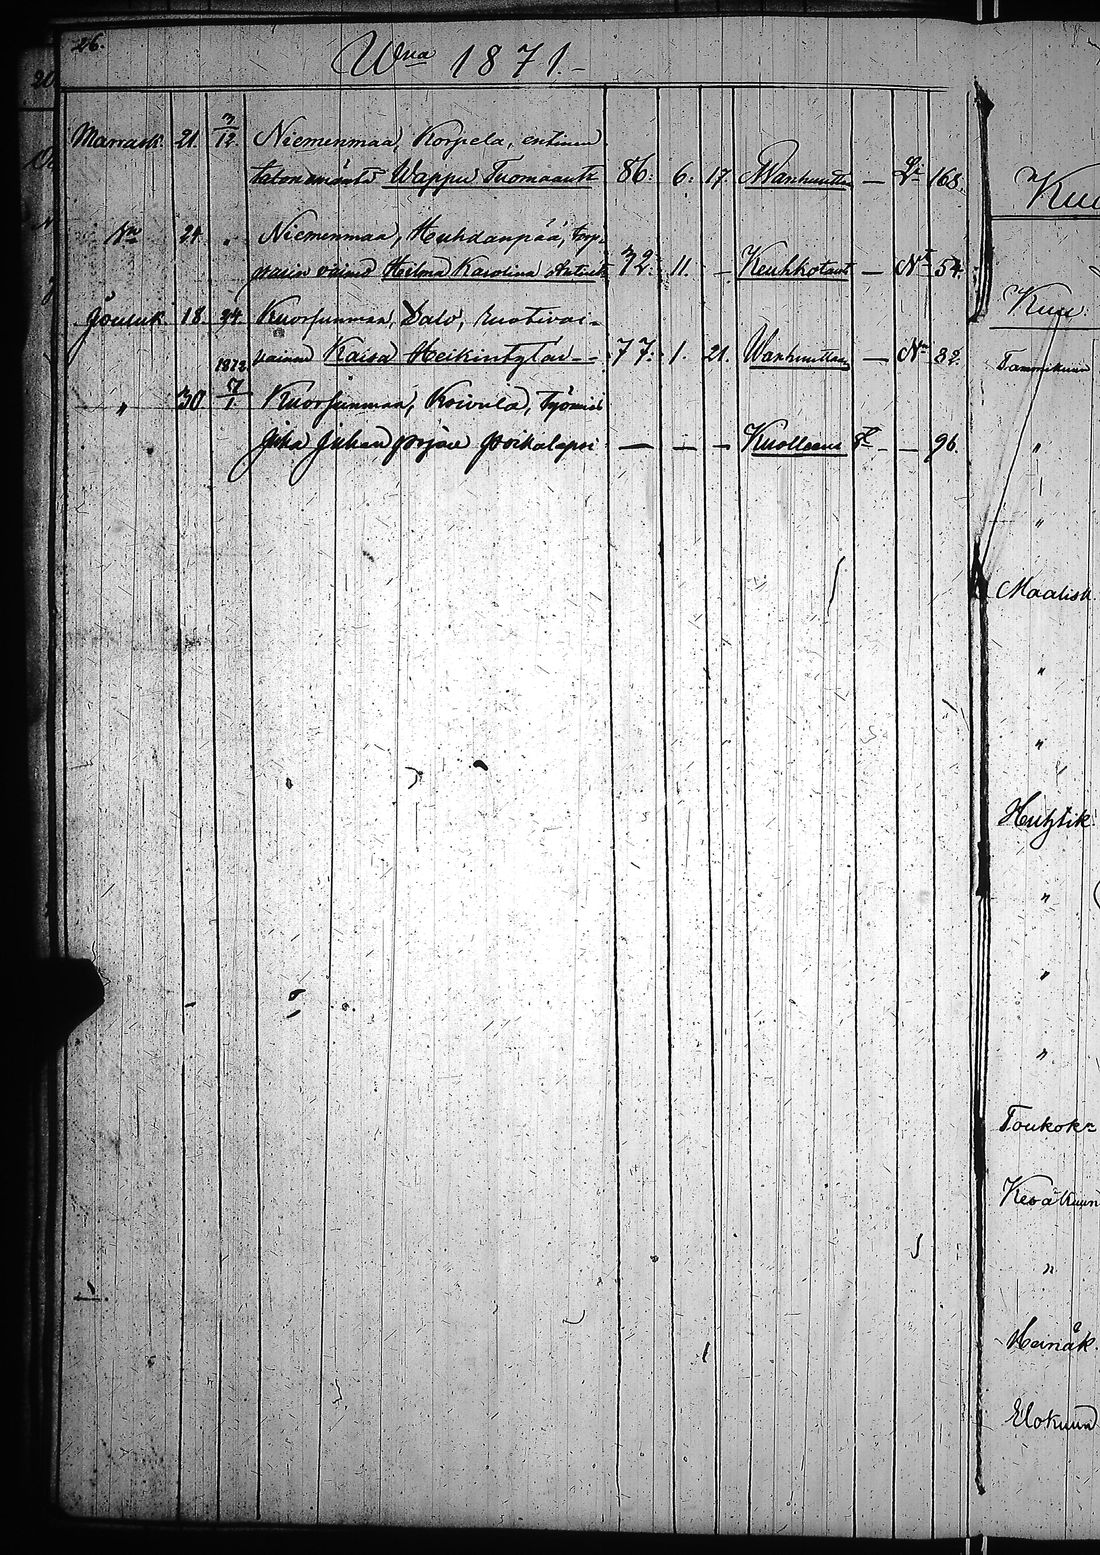 26.
Wna 1871.
Marrask. 21. 3/12. Niemenmaa, Korpela, entinen
talon emäntä Wappu Tuomaant: 86: 6: 17. Wanhuutta — Lr 168.
Sn 24. „ Niemenmaa, Huhdanpää, torp-
parin vaimo Heilma Karolina Antint: 32: 11. — Keuhkotaut — Nr 54.
Jouluk 18. 24. Kuorsunmaa, Salo, ruotivai-
vainen Kaisa Heikintytär -- 77: 1. 21. Wanhuuttaan — Nr 32.
„ 30 1872 7/1. Kuorsunmaa, Koivula, Työmies
Juha Juhan pojan poikalapsi — — — Kuolleena — — 96.
Kuu
Kuu.
Tammikuun
„
„
Maalisk.
„
„
Huhtik.
„
„
„
Toukok
Kesäkuun
„
Heinäk.
Elokuun